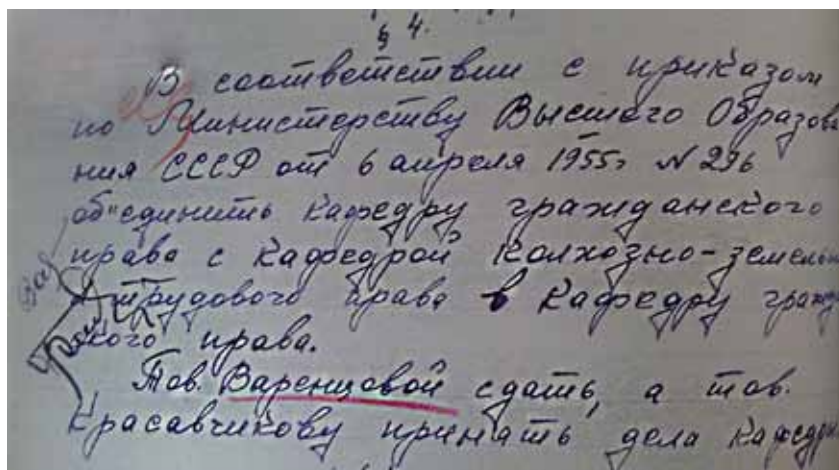 § 4.
В соответствии с приказом
по Министерству Высшего Образова
ния СССР от 6 апреля 1955г N 296
об"единить кафедру гражданского
права с кафедрой колхозно-земельн
трудового права в кафедру граж
ского права.
Тов. Варенцовой сдать, а тов.
Красавчикову принять дела кафедр